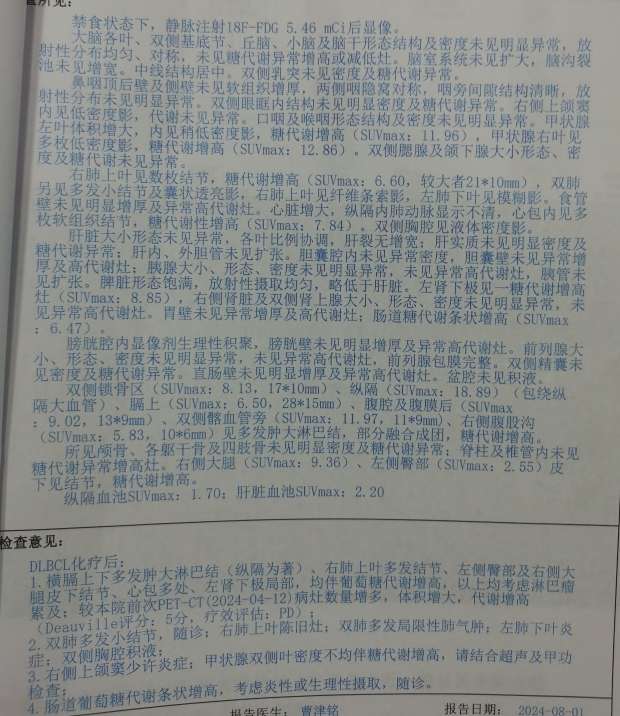 查所见:
禁食状态下，静脉注射18F-FDG 5.46 mCi后显像。
大脑各叶、双侧基底节、丘脑、小脑及脑干形态结构及密度未见明显异常，放
射性分布均匀、对称，未见糖代谢异常增高或减低灶。脑室系统未见扩大，脑沟裂
池未见增宽。中线结构居中。双侧乳突未见密度及糖代谢异常。
鼻咽顶后壁及侧壁未见软组织增厚，两侧咽隐窝对称，咽旁间隙结构清晰，放
射性分布未见明显异常。双侧眼眶内结构未见明显密度及糖代谢异常。右侧上颌窦
内见低密度影，代谢未见异常。口咽及喉咽形态结构及密度未见明显异常。甲状腺
左叶体积增大，内见稍低密度影，糖代谢增高（SUVmax: 11.96），甲状腺右叶见
多枚低密度影，糖代谢增高（SUVmax: 12.86）。双侧腮腺及颌下腺大小形态、密
度及糖代谢未见异常。
右肺上叶见数枚结节，糖代谢增高（SUVmax: 6.60, 较大者21*10mm），双肺
另见多发小结节及囊状透亮影，右肺上叶见纤维条索影，左肺下叶见模糊影。食管
壁未见明显增厚及异常高代谢灶。心脏增大，纵隔内肺动脉显示不清，心包内见多
枚软组织结节，糖代谢性增高（SUVmax: 7.84）。双侧胸腔见液体密度影。
肝脏大小形态未见异常，各叶比例协调，肝裂无增宽；肝实质未见明显密度及
糖代谢异常；肝内、外胆管未见扩张。胆囊腔内未见异常密度，胆囊壁未见异常增
厚及高代谢灶；胰腺大小、形态、密度未见明显异常，未见异常高代谢灶，胰管未
见扩张。脾脏形态饱满，放射性摄取均匀，略低于肝脏。左肾下极见一糖代谢增高
灶（SUVmax: 8.85），右侧肾脏及双侧肾上腺大小、形态、密度未见明显异常，未
见异常高代谢灶。胃壁未见异常增厚及高代谢灶；肠道糖代谢条状增高（SUVmax
: 6.47）。
膀胱腔内显像剂生理性积聚，膀胱壁未见明显增厚及异常高代谢灶。前列腺大
小、形态、密度未见明显异常，未见异常高代谢灶，前列腺包膜完整。双侧精囊未
见密度及糖代谢异常。直肠壁未见明显增厚及异常高代谢灶。盆腔未见积液。
双侧锁骨区（SUVmax: 8.13, 17*10mm）、纵隔（SUVmax: 18.89）（包绕纵
隔大血管）、膈上（SUVmax: 6.50, 28*15mm）、腹腔及腹膜后（SUVmax
: 9.02, 13*9mm）、双侧髂血管旁（SUVmax: 11.97, 11*9mm）、右侧腹股沟
（SUVmax: 5.83, 10*6mm）见多发肿大淋巴结，部分融合成团，糖代谢增高。
所见颅骨、各躯干骨及四肢骨未见明显密度及糖代谢异常；脊柱及椎管内未见
糖代谢异常增高灶。右侧大腿（SUVmax: 9.36）、左侧臀部（SUVmax: 2.55）皮
下见结节，糖代谢增高。
纵隔血池SUVmax: 1.70; 肝脏血池SUVmax: 2.20
检查意见:
DLBCL化疗后:
1. 横膈上下多发肿大淋巴结（纵隔为著）、右肺上叶多发结节、左侧臀部及右侧大
腿皮下结节、心包多处、左肾下极局部，均伴葡萄糖代谢增高，以上均考虑淋巴瘤
累及；较本院前次PET-CT(2024-04-12)病灶数量增多，体积增大，代谢增高
（Deauville评分: 5分，疗效评估: PD）;
2. 双肺多发小结节，随诊；右肺上叶陈旧灶；双肺多发局限性肺气肿；左肺下叶炎
症；双侧胸腔积液；
3. 右侧上颌窦少许炎症；甲状腺双侧叶密度不均伴糖代谢增高，请结合超声及甲功
检查；
4. 肠道葡萄糖代谢条状增高，考虑炎性或生理性摄取，随诊。
报告医生: 曹津铭 报告日期: 2024-08-01